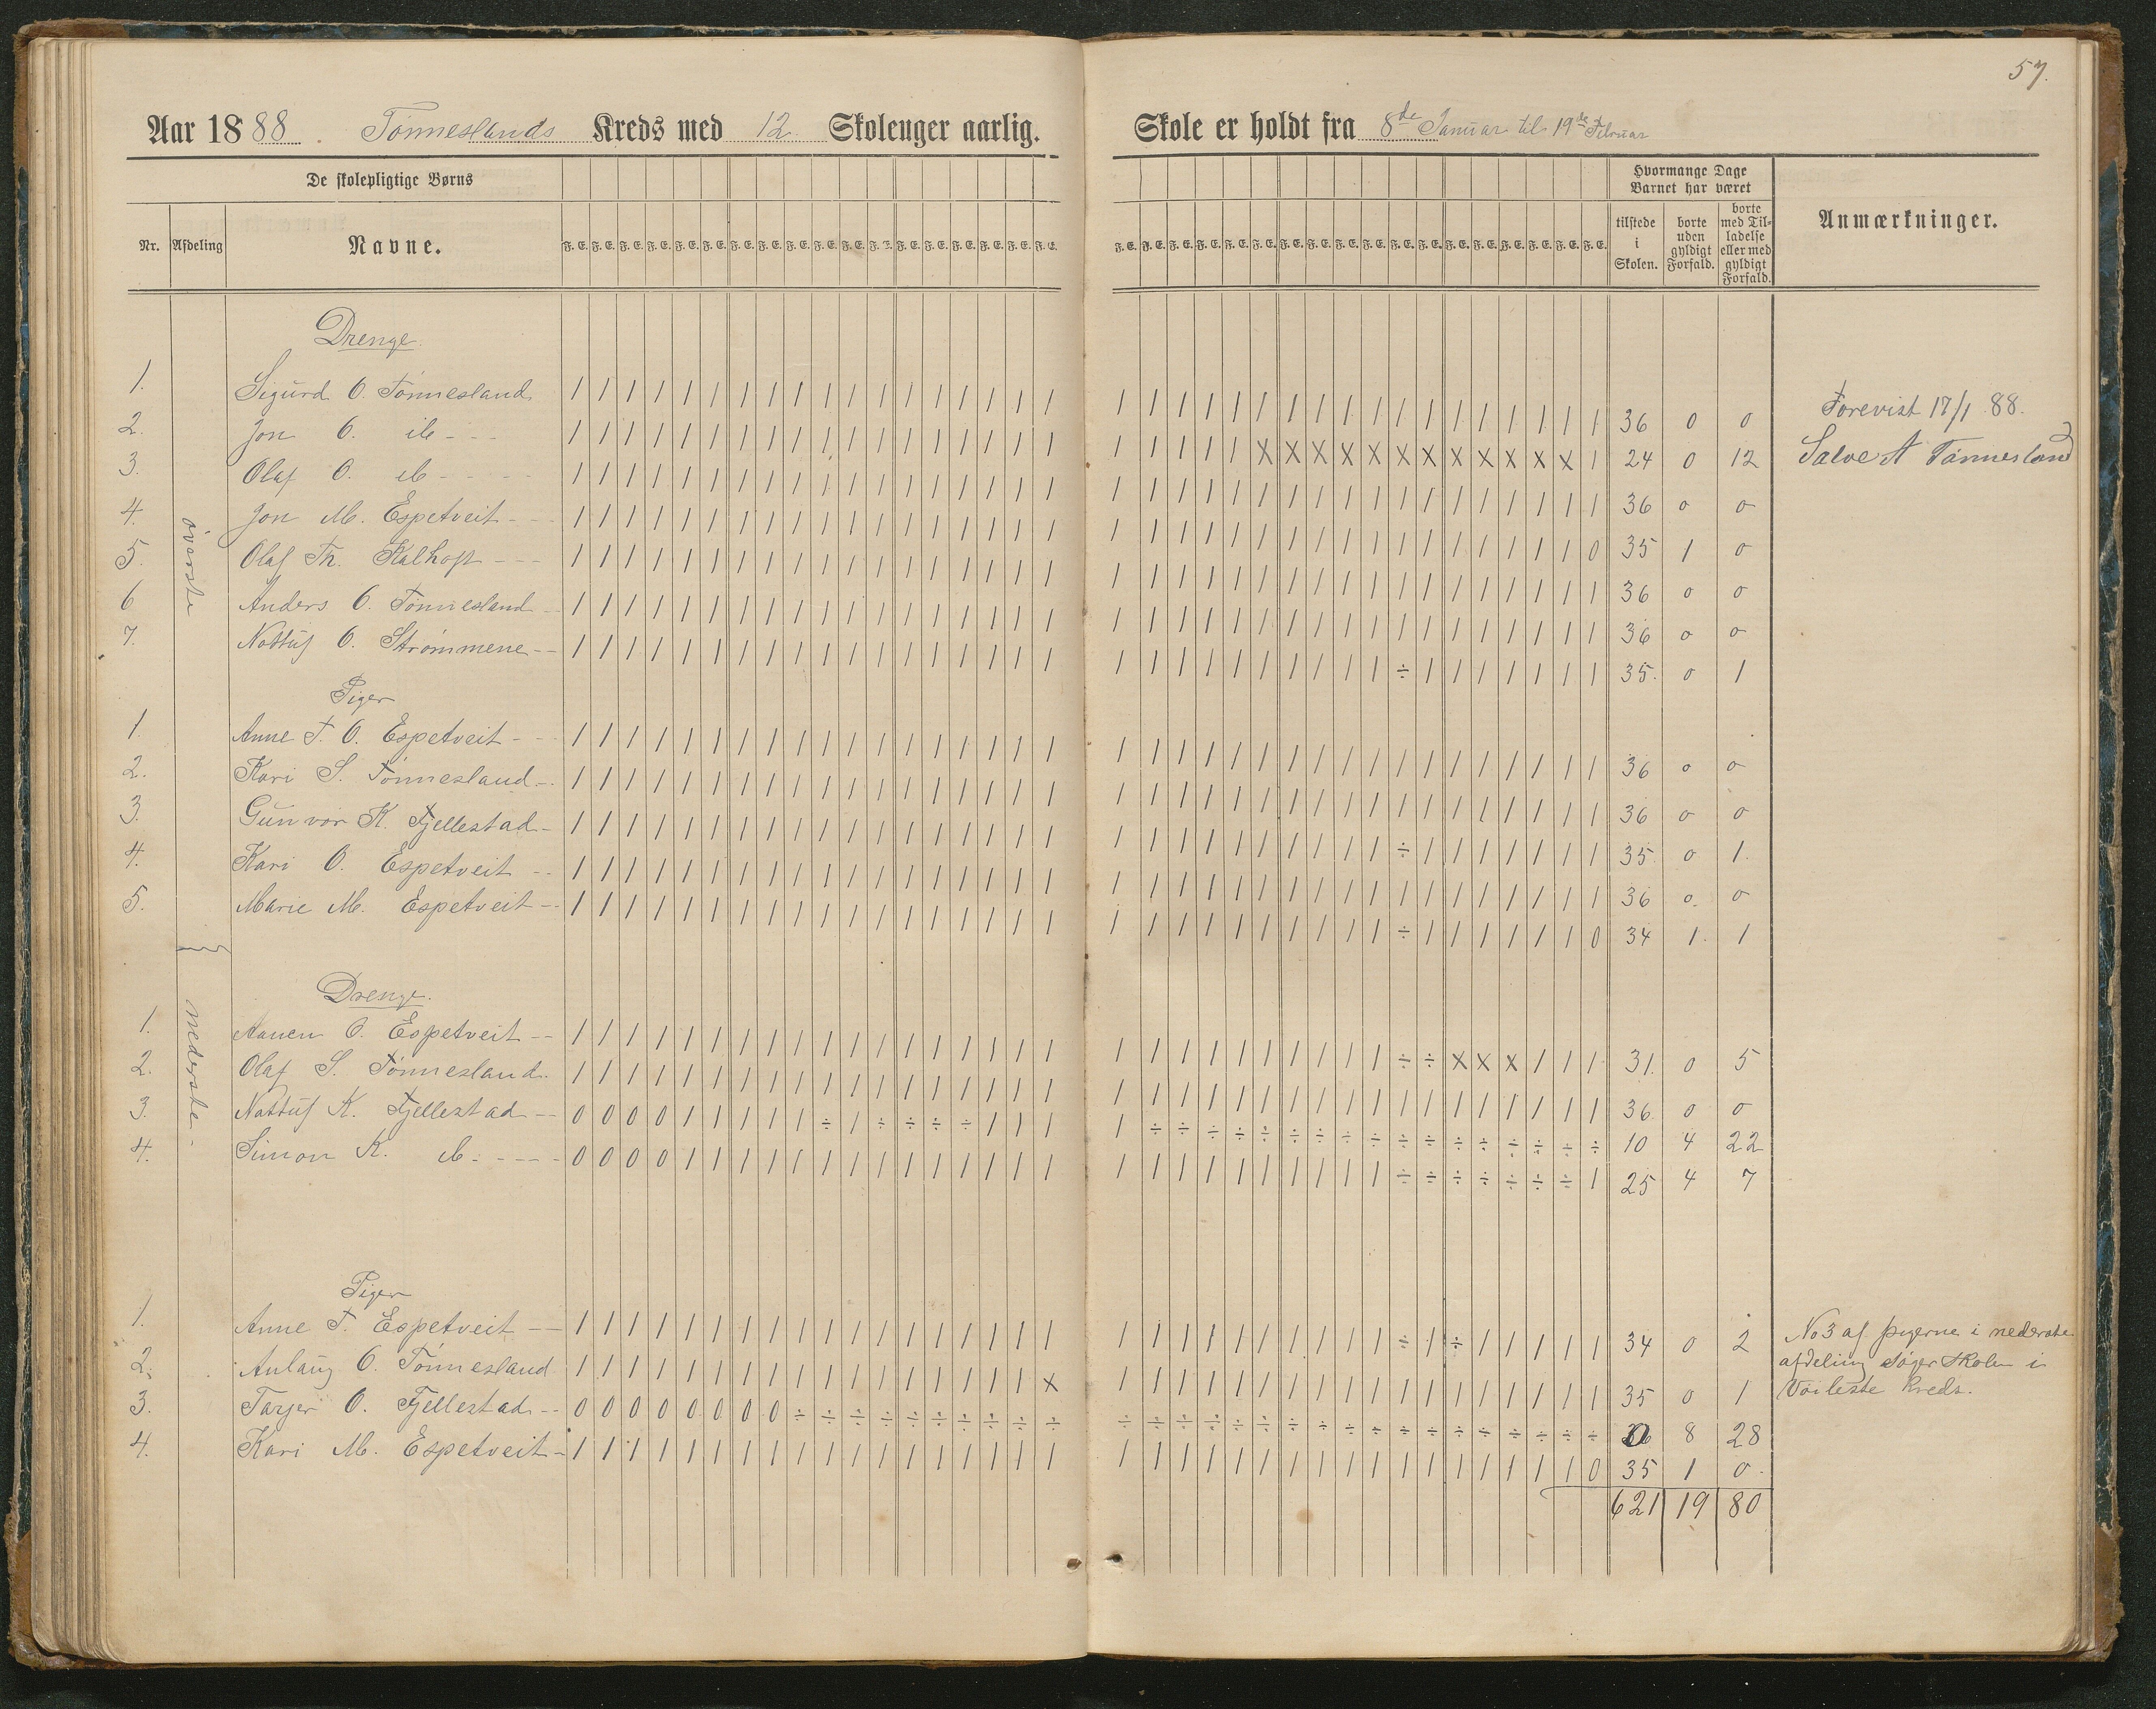 57.
Aar 1888 Tønneslands Kreds med 12 Skoleuger aarlig. Skole er holdt fra 8de Januar til 19de Februar
De skolepligtige Børns
Hvormange Dage Barnet har været
Nr. Afdeling Navne. F. E. F. E. F. E. F. E. F. E. F. E. F. E. F. E. F. E. F. E. F. E. F. E. F. E. F. E. F. E. F. E. F. E. F. E. F. E. F. E. F. E. F. E. F. E. F. E. F. E. F. E. F. E. F. E. F. E. F. E. F. E. F. E. F. E. F. E. F. E. F. E. tilstede i Skolen. borte uden gyldigt Forfald. borte med Tilladelse eller med gyldigt Forfald. Anmærkninger.
øverste
Drenge.
1. Sigurd O. Tønnesland / / / / / / / / / / / / / / / / / / / / / / / / / / / / / / / / / / / / 36 0 0
Forevist 17/1 88.
2. Jon O. do - - - / / / / / / / / / / / / / / / / / / / / / / / X X X X X X X X X X X X / 24 0 12
Salve A Tønnesland
3. Olaf O. do - - - - / / / / / / / / / / / / / / / / / / / / / / / / / / / / / / / / / / / / 36 0 0
4. Jon M. Espetveit - - / / / / / / / / / / / / / / / / / / / / / / / / / / / / / / / / / / / 0 35 1 0
5. Olaf Th. Kalhoft - - - / / / / / / / / / / / / / / / / / / / / / / / / / / / / / / / / / / / / 36 0 0
6 Anders O. Tønnesland - / / / / / / / / / / / / / / / / / / / / / / / / / / / / / / / / / / / / 36 0 0
7. Nottuf O. Strømmene - - / / / / / / / / / / / / / / / / / / / / / / / / / / / / ÷ / / / / / / / 35. 0 1
Piger
1. Anne T. O. Espetveit - - / / / / / / / / / / / / / / / / / / / / / / / / / / / / / / / / / / / / 36 0 0
2. Kari S. Tønnesland - . / / / / / / / / / / / / / / / / / / / / / / / / / / / / / / / / / / / / 36 0 0
3. Gunvor K. Fjellestad - / / / / / / / / / / / / / / / / / / / / / / / / / / / / ÷ / / / / / / / 35 0 1.
4. Kari O. Espetveit - - / / / / / / / / / / / / / / / / / / / / / / / / / / / / / / / / / / / / 36 0. 0
5. Marie M. Espetveit - - / / / / / / / / / / / / / / / / / / / / / / / / / / / / ÷ / / / / / / 0 34 1. 1
nederste
Drenge.
1. Aanen O. Espetveit - - / / / / / / / / / / / / / / / / / / / / / / / / / / / / ÷ ÷ X X X / / / 31. 0 5
2. Olaf S. Tønnesland. / / / / / / / / / / / / / / / / / / / / / / / / / / / / / / / / / / / / 36. 0 0
3. Nottuf K. Fjellestad - - 0 0 0 0 / / / / / ÷ / ÷ ÷ ÷ ÷ / / / / ÷ ÷ ÷ ÷ ÷ ÷ ÷ ÷ ÷ ÷ ÷ ÷ ÷ ÷ ÷ ÷ ÷ 10 4 22
4. Simon K. do. - - - - 0 0 0 0 / / / / / / / / / / / / / / / / / / / / / / / / ÷ ÷ ÷ ÷ ÷ ÷ ÷ / 25 4 7
Piger
1. Anne T. Espetveit - - / / / / / / / / / / / / / / / / / / / / / / / / / / / / ÷ / ÷ / / / / / 34 0 2
No 3 af pigerne i nederste
2. Aulaug O. Tønnesland / / / / / / / / / / / / / / / / / X / / / / / / / / / / / / / / / / / / 35 0 1
afdeling søger Skolen i
Voileste Kreds.
3. Tarjer O. Fjellestad - - 0 0 0 0 0 0 0 0 ÷ ÷ ÷ ÷ ÷ ÷ ÷ ÷ ÷ ÷ ÷ ÷ ÷ ÷ ÷ ÷ ÷ ÷ ÷ ÷ ÷ ÷ ÷ ÷ ÷ ÷ ÷ ÷ 0 8 28
4. Kari M. Espetveit - / / / / / / / / / / / / / / / / / / / / / / / / / / / / / / / / / / / 0 35 1 0
621 19 80